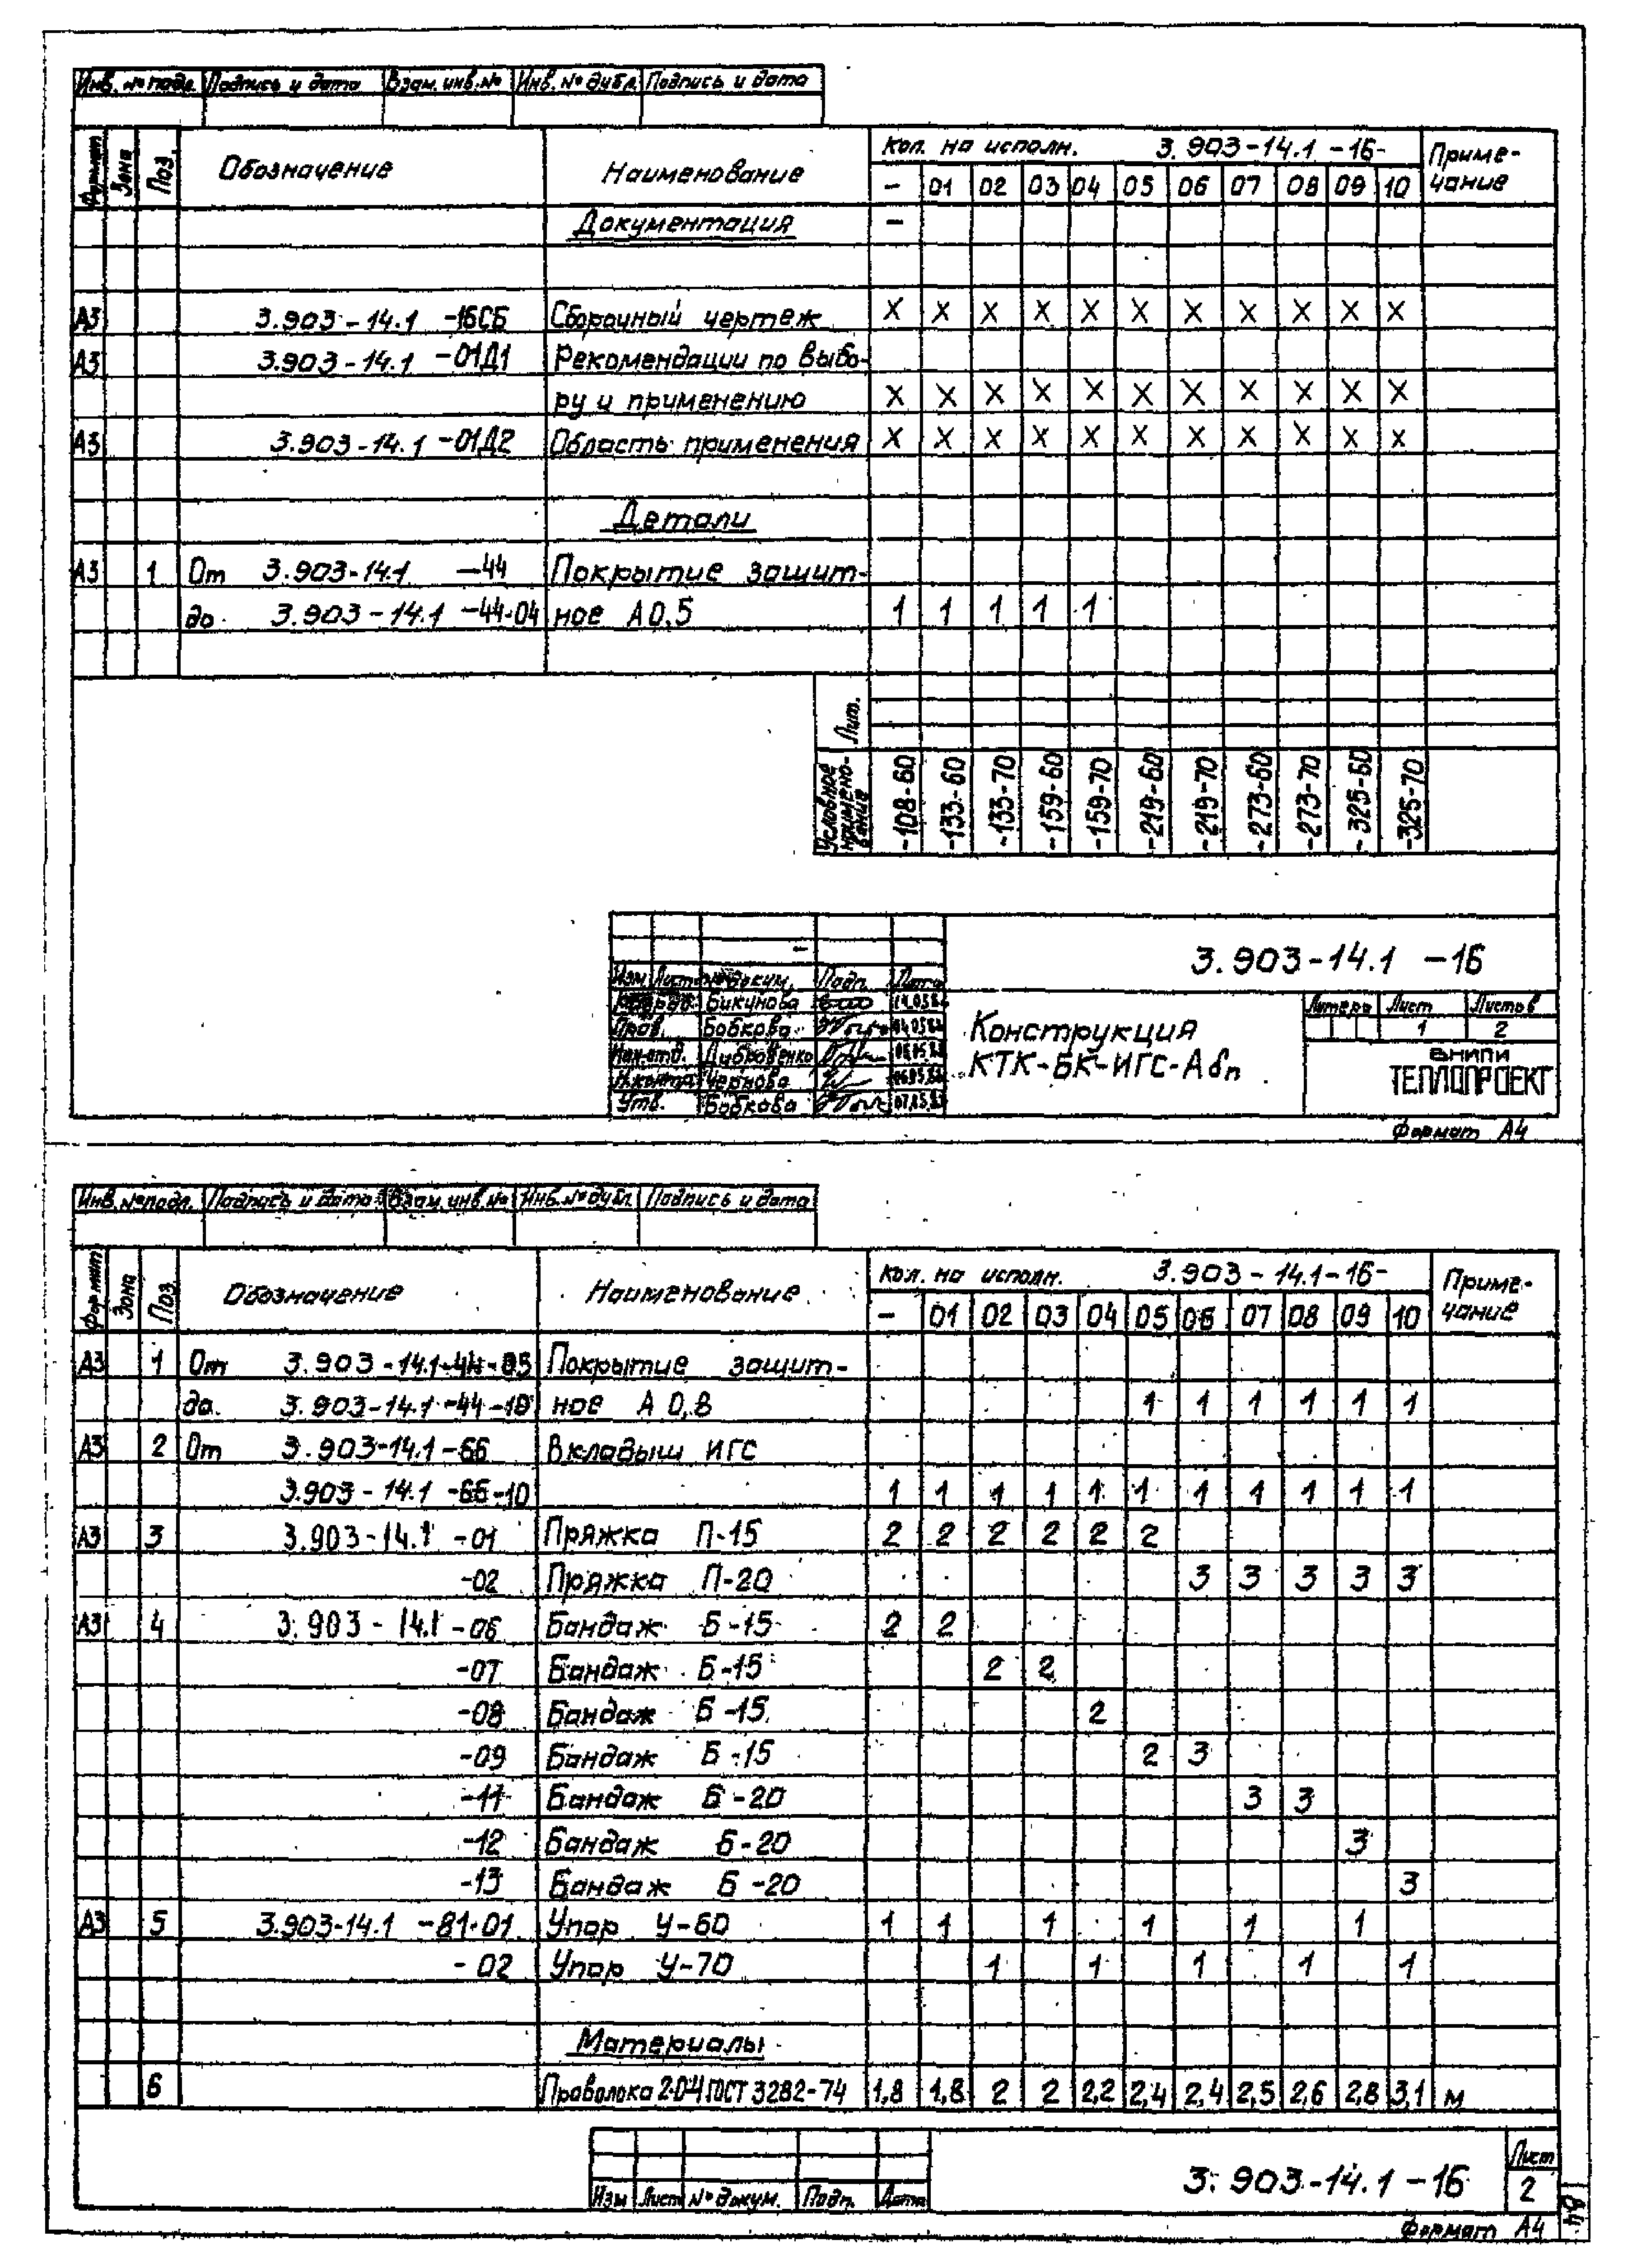 Инв. № подл. Подпись и дата Взам. инв. № Инв. № дубл. Подпись и дата
Формат Зона Поз. Обозначение Наименование Кол. на исполн. 3.903-14.1-16- Приме-
- 01 02 03 04 05 06 07 08 09 10 чание
Документация -
А3 3.903-14.1-16СБ Сборочный чертеж X X X X X X X X X X X
А3 3.903-14.1-01Д1 Рекомендации по выбо-
ру и применению X X X X X X X X X X X
А3 3.903-14.1-01Д2 Область применения X X X X X X X X X X X
Детали
А3 1 От 3.903-14.1 -44 Покрытие защит-
до 3.903-14.1-44-04 ное А 0,5 1 1 1 1 1
Лит.
Условное наименование -108-60 -133-60 -133-70 -159-60 -159-70 -219-60 -219-70 -273-60 -273-70 -325-60 -325-70
3.903-14.1 -16
Изм Лист № докум. Подп. Дата
Бикунова
Пров. Бобкова
Нач. отд. Дубровенко
Н.контр Чернова
Утв. Бобкова
Конструкция
КТК-БК-ИГС-Абп
Литера Лист Листов
1 2
ВНИПИ
ТЕПЛОПРОЕКТ
Формат А4
Инв. № подл. Подпись и дата Взам. инв. № Инв. № дубл. Подпись и дата
Формат Зона Поз Обозначение Наименование Кол. на исполн. 3.903-14.1-16- Приме-
- 01 02 03 04 05 06 07 08 09 10 чание
А3 1 От 3.903-14.1-44-05 Покрытие защит-
до 3.903-14.1-44-10 ное А 0,8 1 1 1 1 1 1
А3 2 От 3.903-14.1-66 Вкладыш ИГС
3.903-14.1-66-10 1 1 1 1 1 1 1 1 1 1 1
А3 3 3.903-14.1 -01 Пряжка П-15 2 2 2 2 2 2
-02 Пряжка П-20 3 3 3 3 3
А3 4 3.903-14.1-06 Бандаж Б-15 2 2
-07 Бандаж Б-15 2 2
-08 Бандаж Б-15 2
-09 Бандаж Б-15 2 3
-11 Бандаж Б-20 3 3
-12 Бандаж Б-20 3
-13 Бандаж Б-20 3
А3 5 3.903-14.1-81-01 Упор У-60 1 1 1 1 1 1
-02 Упор У-70 1 1 1 1 1
Материалы
6 Проволока 2-0-Ч ГОСТ 3282-74 1,8 1,8 2 2 2,2 2,4 2,4 2,5 2,6 2,8 3,1 м
Изм Лист № докум. Подп. Дата
3.903-14.1-16
Лист
2
Формат А4
84